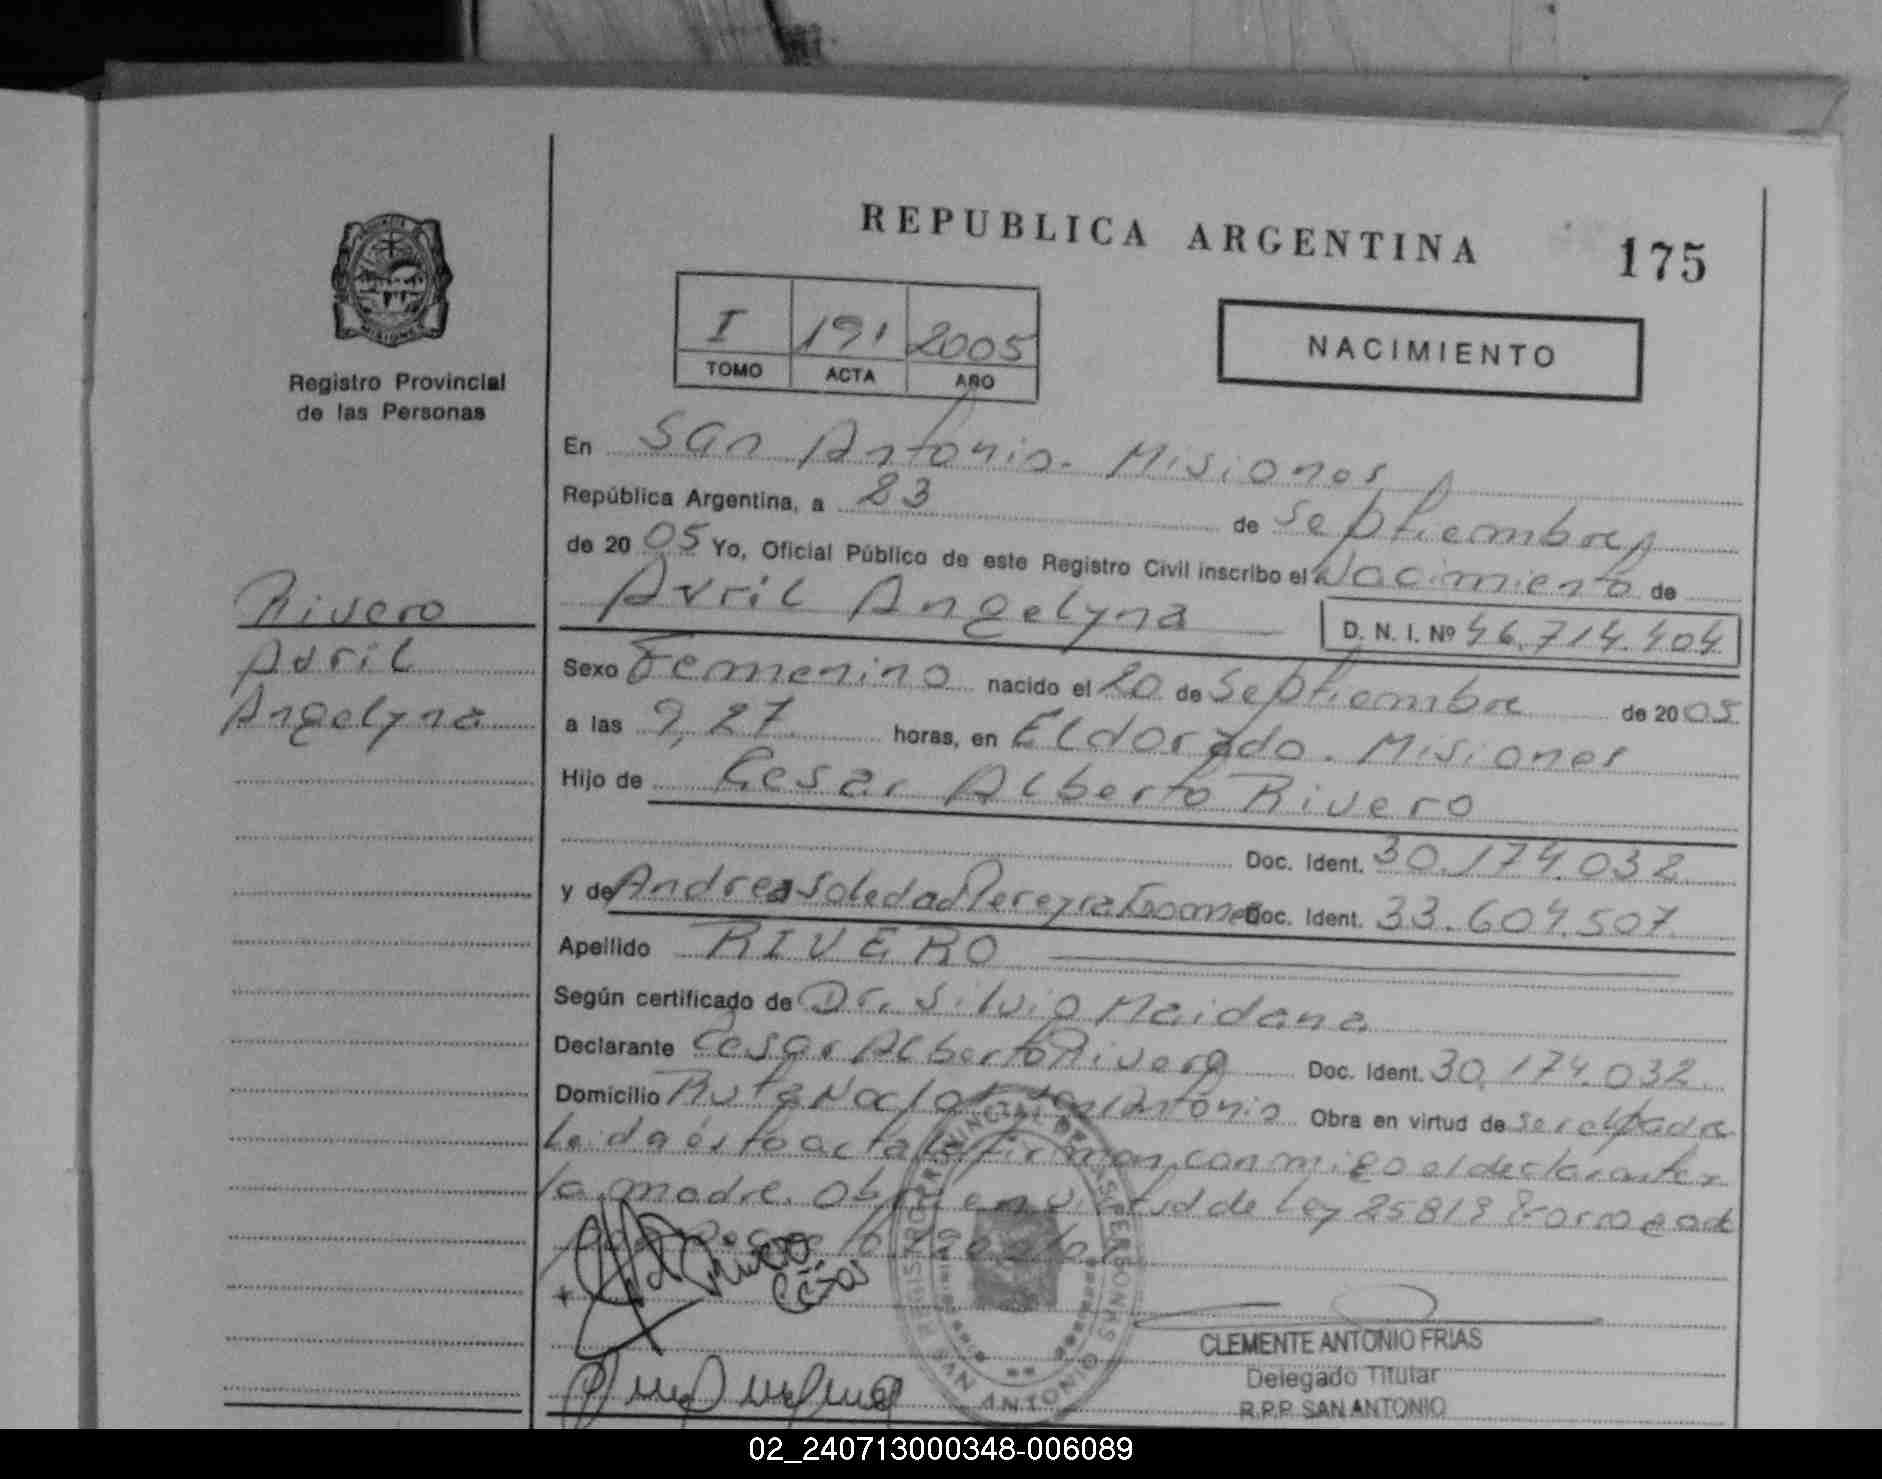 REPUBLICA ARGENTINA
175
I 191 2005
TOMO ACTA AÑO
NACIMIENTO
Registro Provincial
de las Personas
Rivero
Avril
Angelyna
En San Antonio. Misiones
República Argentina, a 23 de Septiembre
de 2005 Yo, Oficial Público de este Registro Civil inscribo el Nacimiento de
Avril Angelyna D. N. I. Nº 46.714.404
Sexo Femenino nacido el 20 de Septiembre de 2005
a las 9,27 horas, en Eldorado. Misiones
Hijo de Cesar Alberto Rivero
Doc. Ident. 30.174.032
y de Andrea Soledad Pereyra Gomez Doc. Ident. 33.604.507
Apellido RIVERO
Según certificado de Dr. Silvio Maidana
Declarante Cesar Alberto Rivero Doc. Ident. 30.174.032
Domicilio Ruta San Antonio Obra en virtud de ser el padre
Leida ésta acta la firman conmigo el declarante y
la madre. Obra en virtud de Ley 25819
Rivero
César
REGISTRO PROVINCIAL DE LAS PERSONAS
SAN ANTONIO
CLEMENTE ANTONIO FRIAS
Delegado Titular
R.P.P. SAN ANTONIO
02_240713000348-006089